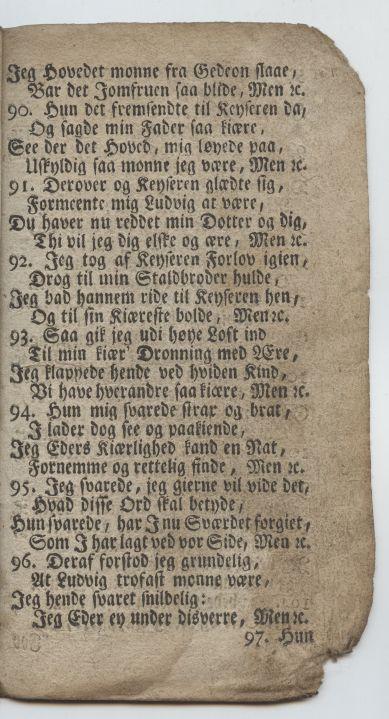 Jeg Hovedet monne fra Gedeon slaae,
Bar det Jomfruen saa blide, Men ꝛc.
90. Hun det fremsendte til Keyseren da,
Og sagde min Fader saa kiære,
See der det Hoved, mig løyede paa,
Uskyldig saa monne jeg være, Men ꝛc.
91. Derover og Keyseren glædte sig,
Formeente mig Ludvig at være,
Du haver nu reddet min Dotter og dig,
Thi vil jeg dig elske og ære, Men ꝛc.
92. Jeg tog af Keyseren Forlov igien,
Drog til min Staldbroder hulde,
Jeg bad hannem ride til Keyseren hen,
Og til sin Kiæreste bolde, Men ꝛc.
93. Saa gik jeg udi høye Loft ind
Til min kiær' Dronning med Ære,
Jeg klappede hende ved hviden Kind,
Vi have hverandre saa kiære, Men ꝛc.
94. Hun mig svarede strax og brat,
I lader dog see og paakiende,
Jeg Eders Kiærlighed kand en Nat,
Fornemme og rettelig finde, Men ꝛc.
95. Jeg svarede, jeg gierne vil vide det,
Hvad disse Ord skal betyde,
Hun svarede, har I nu Sværdet forgiet,
Som I har lagt ved vor Side, Men ꝛc.
96. Deraf forstod jeg grundelig,
At Ludvig trofast monne være,
Jeg hende svaret snildelig:
Jeg Eder ey under disverre, Men ꝛc.
97. Hun